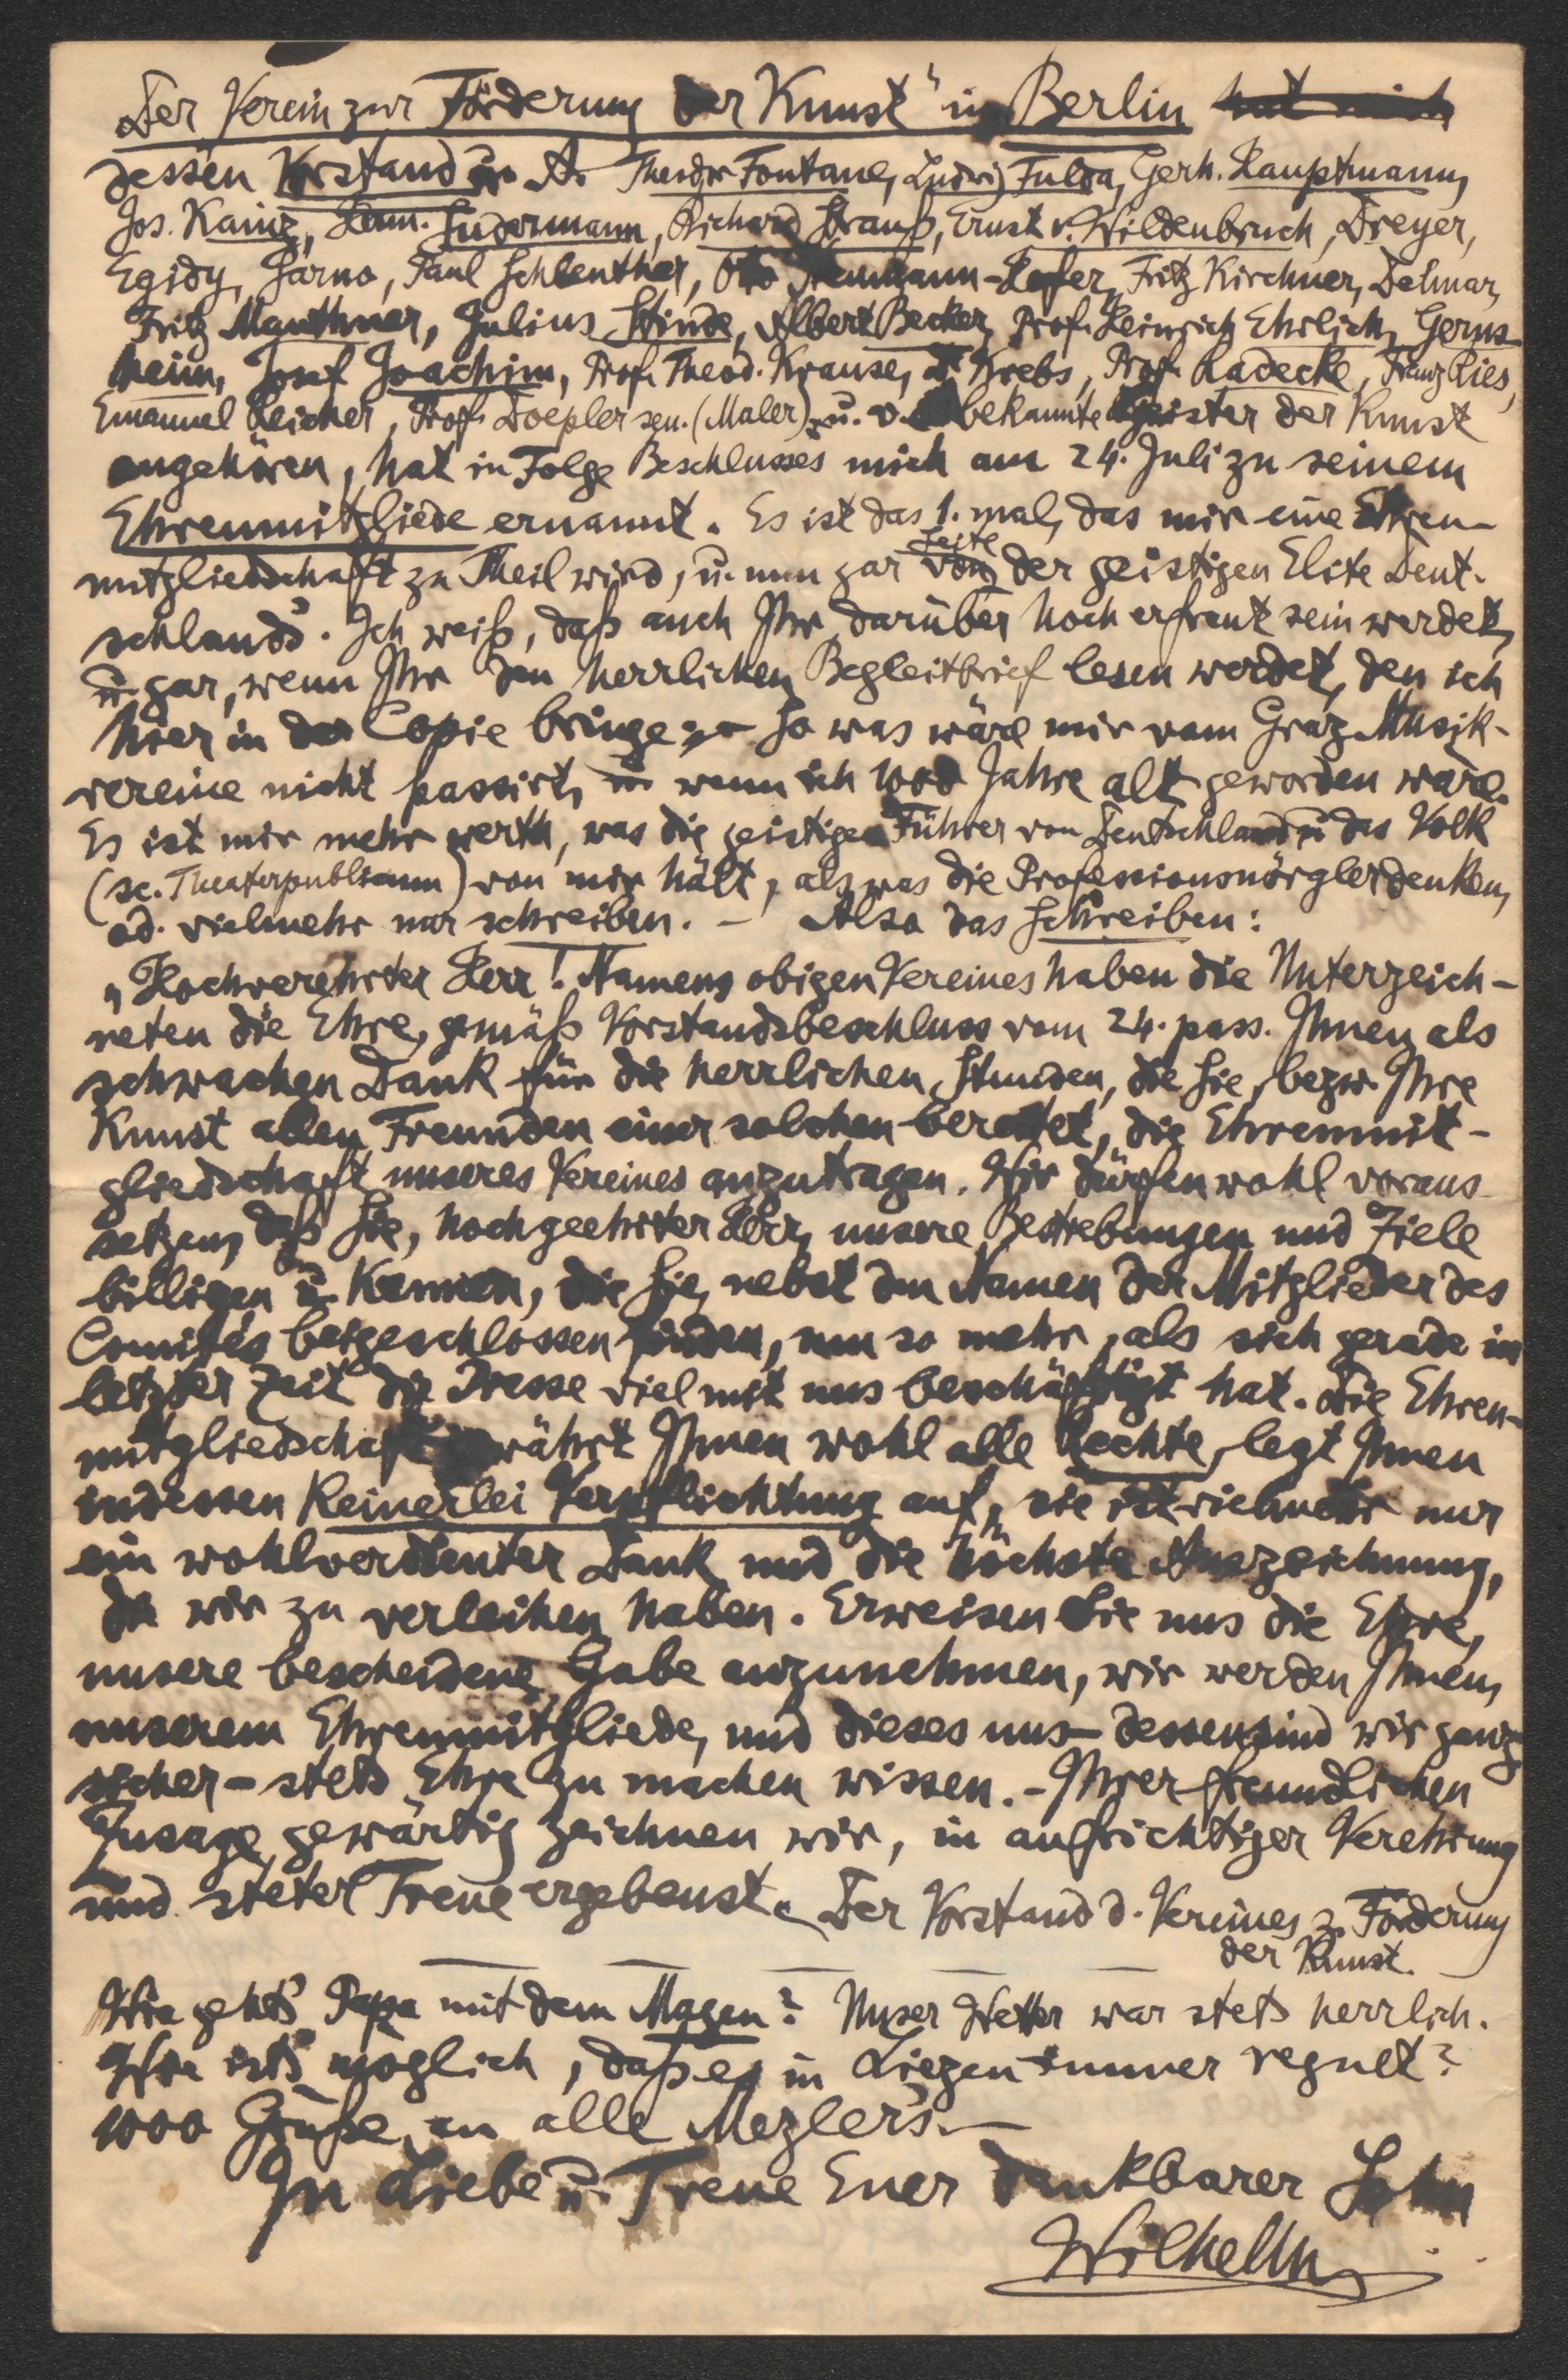 Der Verein zur Förderung der Kunst" in Berlin hat mich
dessen Vorstand u. A. Theodor Fontane, Ludwig Fulda, Gerh. Hauptmann,
Jos. Kainz, Herm. Sudermann, Richard Strauß, Ernst v. Wildenbruch, Dreyer,
Egidy, Jarno, Paul Schlenther, Otto Neumann-Hofer, Fritz Kirchner, Delmar,
Fritz Mauthner, Julius Stinde, Albert Becker, Prof. Heinrich Ehrlich, Gerns-
heim, Josef Joachim, Prof. Theod. Krause, Dr Krebs, Prof. Radecke, Franz Ries,
Emanuel Reicher, Prof. Doepler sen. (Maler) u. v. bekannte Geister der Kunst
angehören, hat in Folge Beschlusses mich am 24. Juli zu seinem
Ehrenmitgliede ernannt. Es ist das 1. mal, das mir eine Ehren-
mitgliedschaft zu Theil wird, u. nun gar von Seite der geistigen Elite Deut-
schlands. Ich weiß, daß auch Ihr darüber hoch erfreut sein werdet,
u. gar, wenn Ihr den herrlichen Begleitbrief lesen werdet, den ich
hier in der Copie bringe; – So was wäre mir vom Graz. Musik-
vereine nicht passirt, u wenn ich 1000 Jahre alt geworden wäre.
Es ist mir mehr werth, was die geistigen Führer von Deutschland u das Volk
(sc. Theaterpublicum) von mir hält, als was die Professionsnörgler denken,
od. vielmehr nur schreiben. – Also das Schreiben:
„Hochverehrter Herr! Namens obigen Vereines haben die Unterzeich-
neten die Ehre, gemäß Vorstandsbeschluss vom 24. pass. Ihnen als
schwachen Dank für die herrlichen Stunden, die Sie, bezw. Ihre
Kunst allen Freunden einer solchen bereitet, die Ehrenmit-
gliedschaft unseres Vereines anzutragen. Wir dürfen wohl voraus-
setzen, daß Sie, hochgeehrter Herr, unsere Bestrebungen und Ziele
billigen u. kennen, die Sie, nebst den Namen der Mitglieder des
Comités beigeschlossen finden, um so mehr, als sich gerade in
letzter Zeit die Presse viel mit uns beschäftigt hat. Die Ehren-
mitgliedschaft gewährt Ihnen wohl alle Rechte, legt Ihnen
indessen keinerlei Verpflichtung auf, sie ist vielmehr nur
ein wohlverdienter Dank und die höchste Auszeichnung,
die wir zu verleihen haben. Erweisen Sie uns die Ehre,
unsere bescheidene Gabe anzunehmen, wir werden Ihnen,
unserem Ehrenmitgliede, und dieses uns – dessen sind wir ganz
sicher – stets Ehre zu machen wissen. – Ihrer freundlichen
Zusage gewärtig zeichnen wir, in aufrichtiger Verehrung
und steter Treue ergebenst „Der Vorstand d. Vereines z. Förderung
der Kunst.
Wie gehts Papa mit dem Magen? Unser Wetter war stets herrlich.
Wie ists möglich, daß es in Liezen immer regnet?
1000 Grüße an alle Mezlers. –
In Liebe u. Treue Euer dankbarer Sohn
Wilhelm